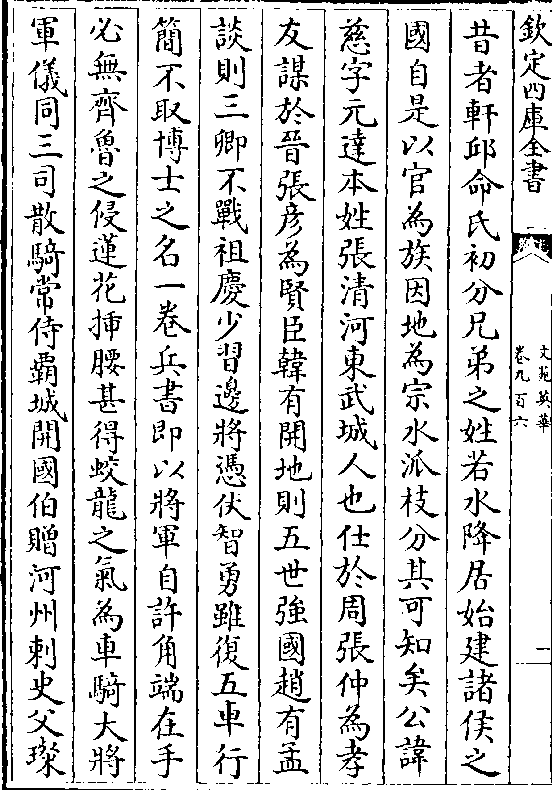 欽定四庫全書
文苑英華
卷九百六
一
昔者軒邱命氏初分兄弟之姓若水降居始建諸侯之
國自是以官為族因地為宗水派枝分其可知矣公諱
慈字元達本姓張清河東武城人也仕於周張仲為孝
友謀於晉張彦為賢臣韓有開地則五世強國趙有孟
談則三卿不戰祖慶少習邊將憑伏智勇雖復五車行
簡不取博士之名一卷兵書即以將軍自許角端在手
必無齊魯之侵蓮花揷腰甚得蛟龍之氣為車騎大將
軍儀同三司散騎常侍霸城開國伯贈河州刺史父璨